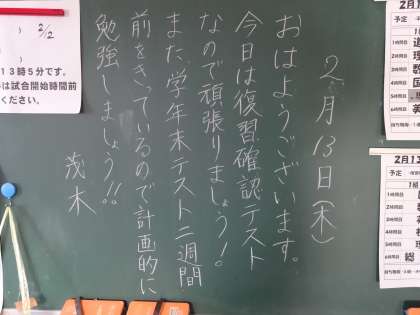 2月13日(木)
おはようございます。
今日は復習確認テスト
なので頑張りましょう!
また、学年末テスト二週間
前をきっているので計画的に
勉強しましょう!!
茂木
2/2
13時5分です。
は試合開始時間前
ください。
2月1
予定
1時間目
2時間目
3時間目
4時間目
5時間目
6時間目
2月13
予定
1組
1時間目
2時間目
3時間目
4時間目
5時間目
6時間目 総